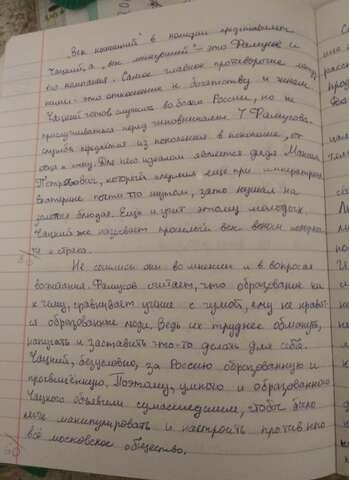 "Век нынешний" в комедии представляет
Чацкий, а "век минувший" - это Фамусов и
его компания. Самое главное противоречие между
ними - это отношение к богатству и чинам.
Чацкий готов служить во благо России, но не
прислуживаться перед чиновниками. У Фамусова
служба продается из поколения в поколение, от
отца к сыну. Для него идеалом является дядя Максим
Петрович, который служил ещё при императрице
Екатерине почти что шутом, зато кушал на
золотом блюде. Ещё и учит этому молодых.
Чацкий же называет прошлый век веком покорности
и страха.
Не сошлись они во мнении и в вопросах
воспитания. Фамусов считает, что образование ни
к чему, сравнивает учение с чумой, ему не нравят-
ся образованные люди. Ведь их труднее обмануть,
напугать и заставить что-то делать для себя.
Чацкий, безусловно, за Россию образованную и
просвещённую. Поэтому, умного и образованного
Чацкого объявили сумасшедшим, чтобы было
легче манипулировать и настроить против него
всё московское общество.